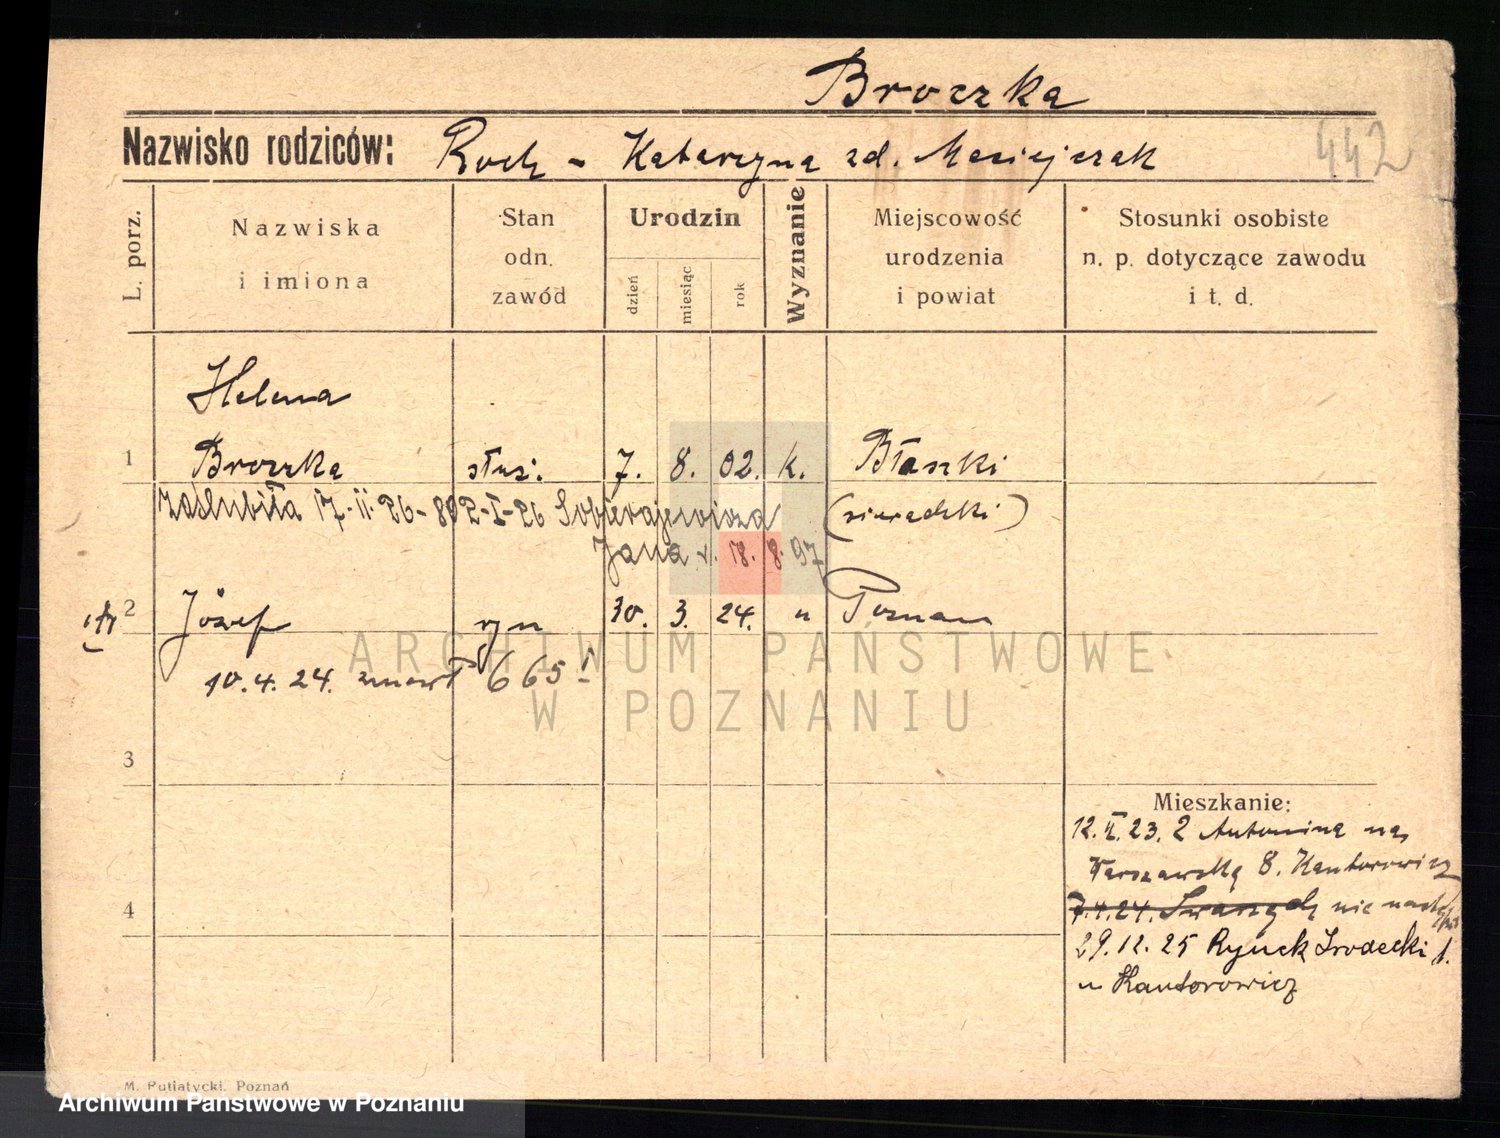 Broszka
Nazwisko rodziców: Roch - Katarzyna zd. Maciejczak
442
L. porz.
Nazwiska
i imiona
Stan
odn.
zawód
Urodzin
dzień
miesiąc
rok
Wyznanie
Miejscowość
urodzenia
i powiat
Stosunki osobiste
n. p. dotyczące zawodu
i t. d.
Helena
1 Broszka służ. 7. 8. 02. k. Błaszki
zaślubiła 17-II-26- 2-I-26 Sobierajewicza (sieradzki)
Jana r. 18. 8. 97
2 Józef syn 30. 3. 24. " Poznań
10.4.24. zmarł 665 I
3
Mieszkanie:
12.II.23. Antonina
Warszawska 8. Kantorowicz
4
7.4.24. nie
29.12.25 Rynek Srodecki 1.
u Kantorowicz
M. Putiatycki, Poznań
ARCHIWUM PAŃSTWOWE
W POZNANIU
Archiwum Państwowe w Poznaniu